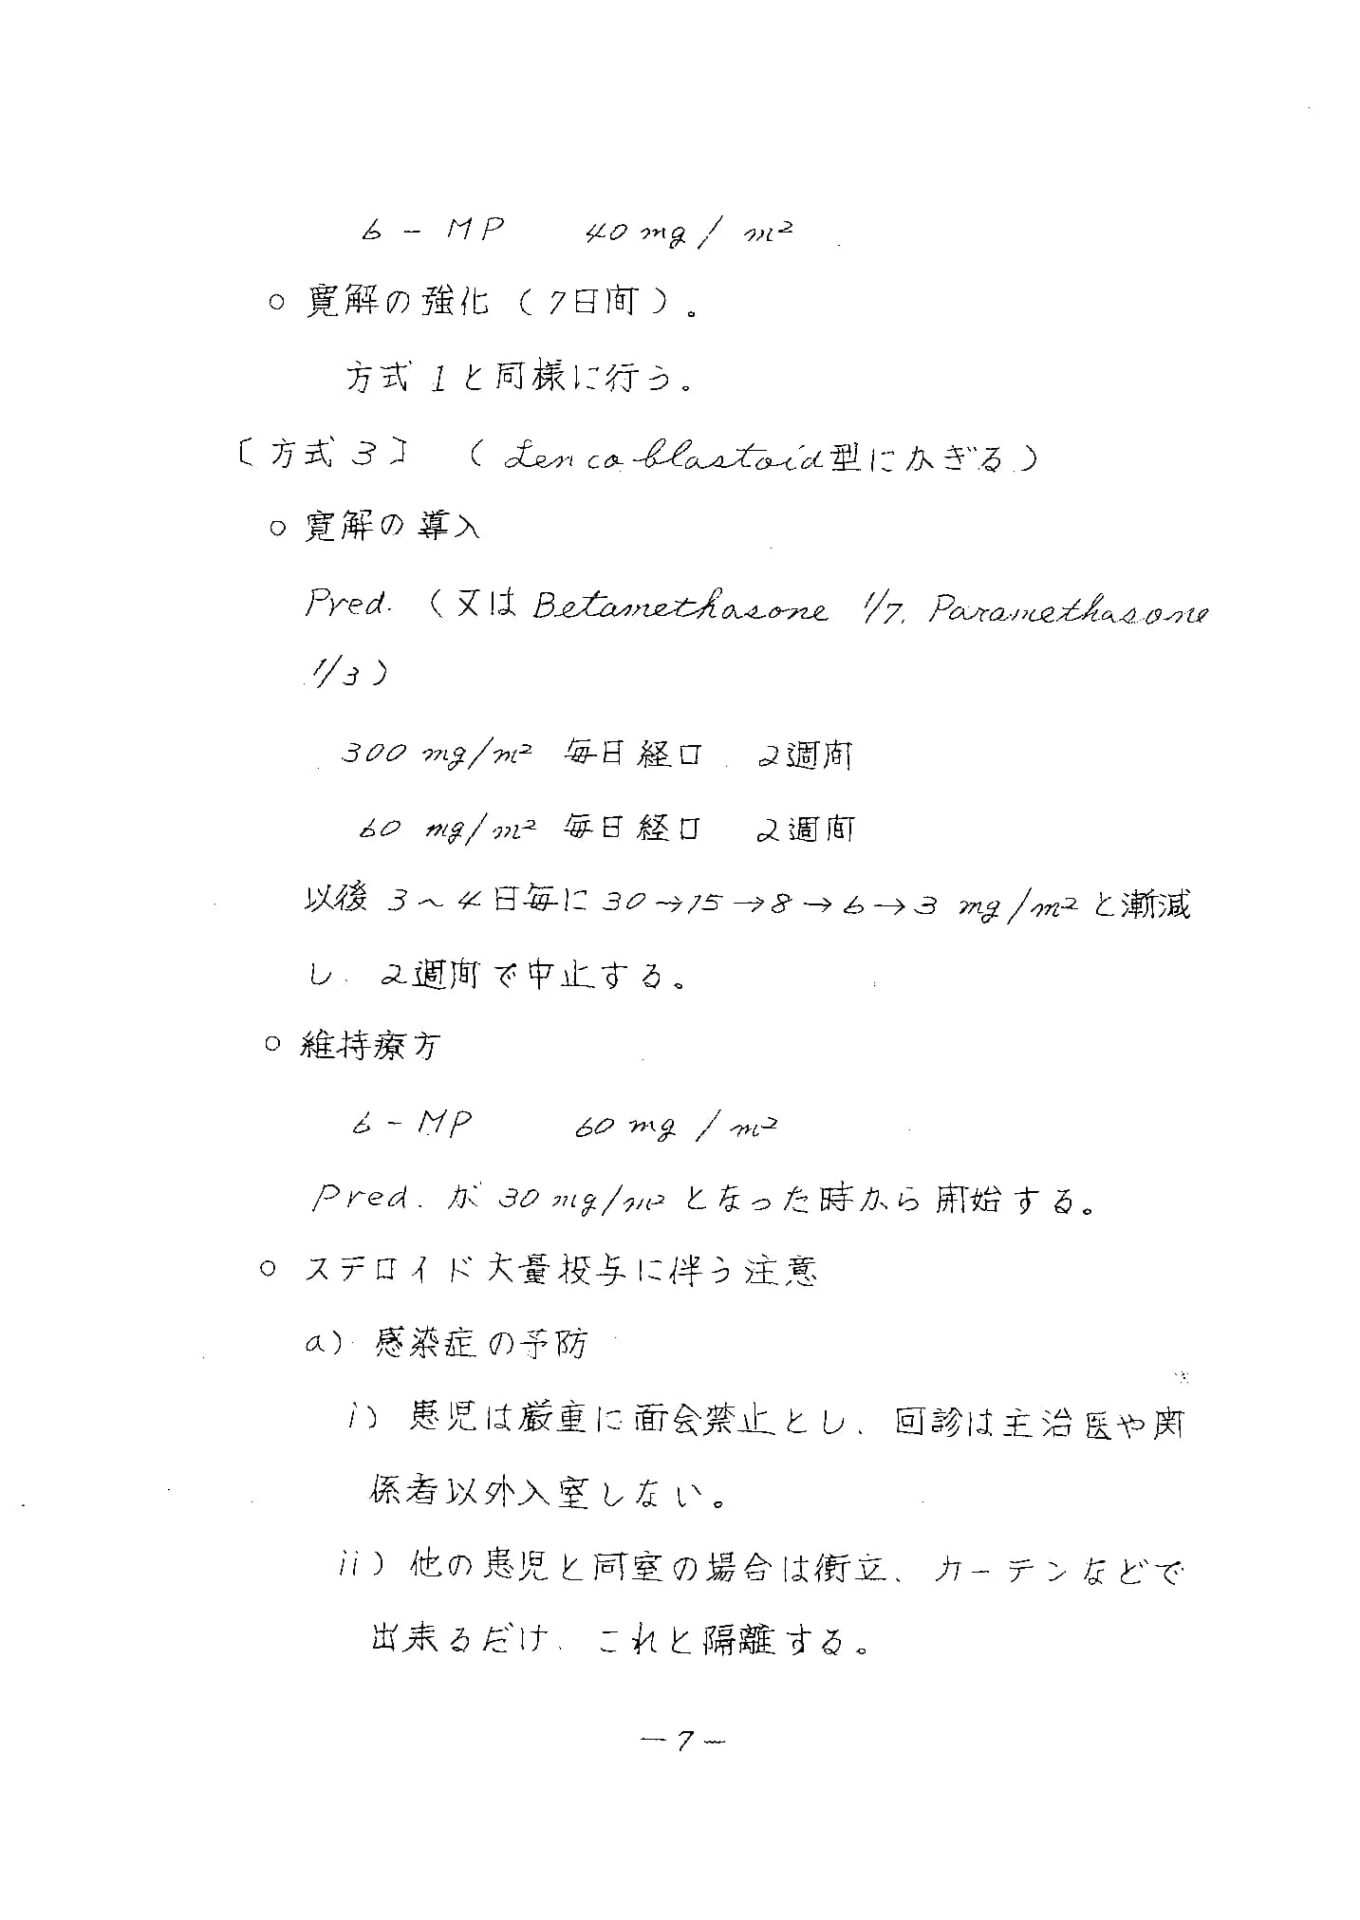 6-MP 40mg/m²
○ 寛解の強化(7日間)。
方式1と同様に行う。
〔方式3〕 (Lencoblastoid型にかぎる)
○ 寛解の導入
Pred.(又はBetamethasone 1/7. Paramethasone
1/3)
300 mg/m² 毎日経口 2週間
60 mg/m² 毎日経口 2週間
以後3~4日毎に30→15→8→6→3 mg/m²と漸減
し、2週間で中止する。
○ 維持療方
6-MP 60mg/m²
Pred.が30mg/m²となった時から開始する。
○ ステロイド大量投与に伴う注意
a) 感染症の予防
i) 患児は厳重に面会禁止とし、回診は主治医や関
係者以外入室しない。
ii) 他の患児と同室の場合は衝立、カーテンなどで
出来るだけ、これと隔離する。
-7-